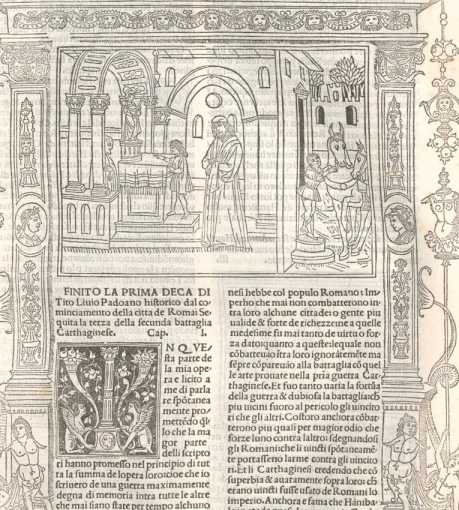 FINITO LA PRIMA DECA DI
Tito Liuio Padoano historico dal co
minciamento della citta de Roma: Se
quita la terza della secunda battaglia
Carthaginese. Cap. I.
IN QVE
sta parte de
la mia ope
ra e licito a
me di parla
re spōtanea
mente pro
mettēdo ql
lo che la ma
gor parte
delli scripto
ri hanno promesso nel principio di tut
ta la summa de lopera loro: cioe che io
scriuero de una guerra maximamente
degna di memoria intra tutte le altre
che mai siano state per tempo alchuno
nesi hebbe col populo Romano: Im
perho che mai non combatterono in
tra loro alchune cittade: o gente piu
ualide & forte de richezze: ne a quelle
medesime fu mai tanto de uirtu o for
za dato: quanto a queste: lequale non
cōbatteuão ītra loro ignorātemēte ma
sēpre cōpareuão alla battaglia cō quel
le arte prouate nella pria guerra Car
thaginese. Et fuo tanto uaria la fortūa
della guerra & dubiosa la battaglia: che
piu uicini fuoro al pericolo gli uincito
ri che gli altri. Costoro anchora cōbat
terono piu quali per magior odio che
forze luno contra laltro: sdegnandosi
gli Romani: che li uincti spōtaneamē
te portasseno larme contra gli uincito
ri. Et li Carthaginesi credendo che cō
superbia & auaramente sopra loro: che
erano uincti fusse usato de Romani lo
imperio. Anchora e fama che Haniba